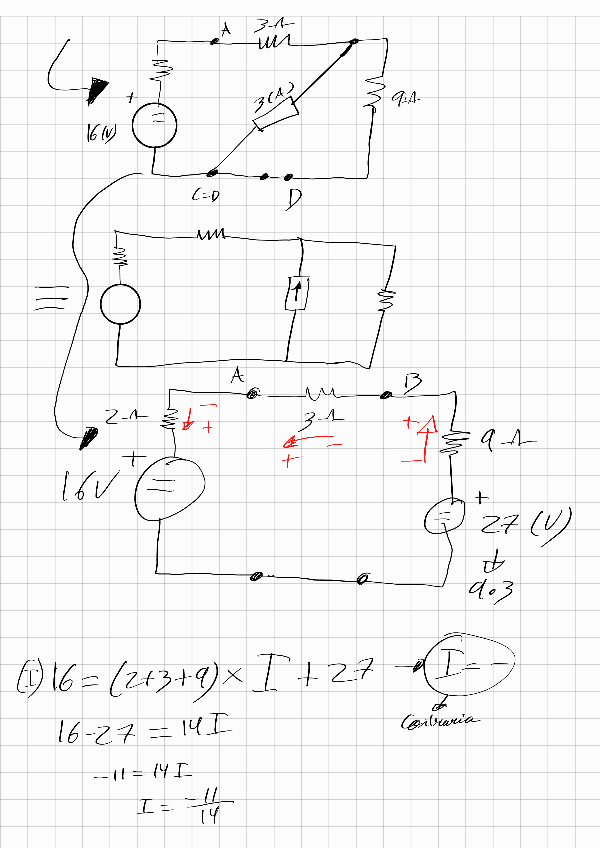 A
3Ω
+
16(V)
3(A)
9Ω
C=D
D
A
B
2Ω
-
+
3Ω
+
-
+
-
9Ω
+
16V
+
27 (V)
9.3
(I) 16 = (2+3+9) × I + 27 → I = -
Contraria
16-27 = 14 I
-11 = 14 I
I = -11/14